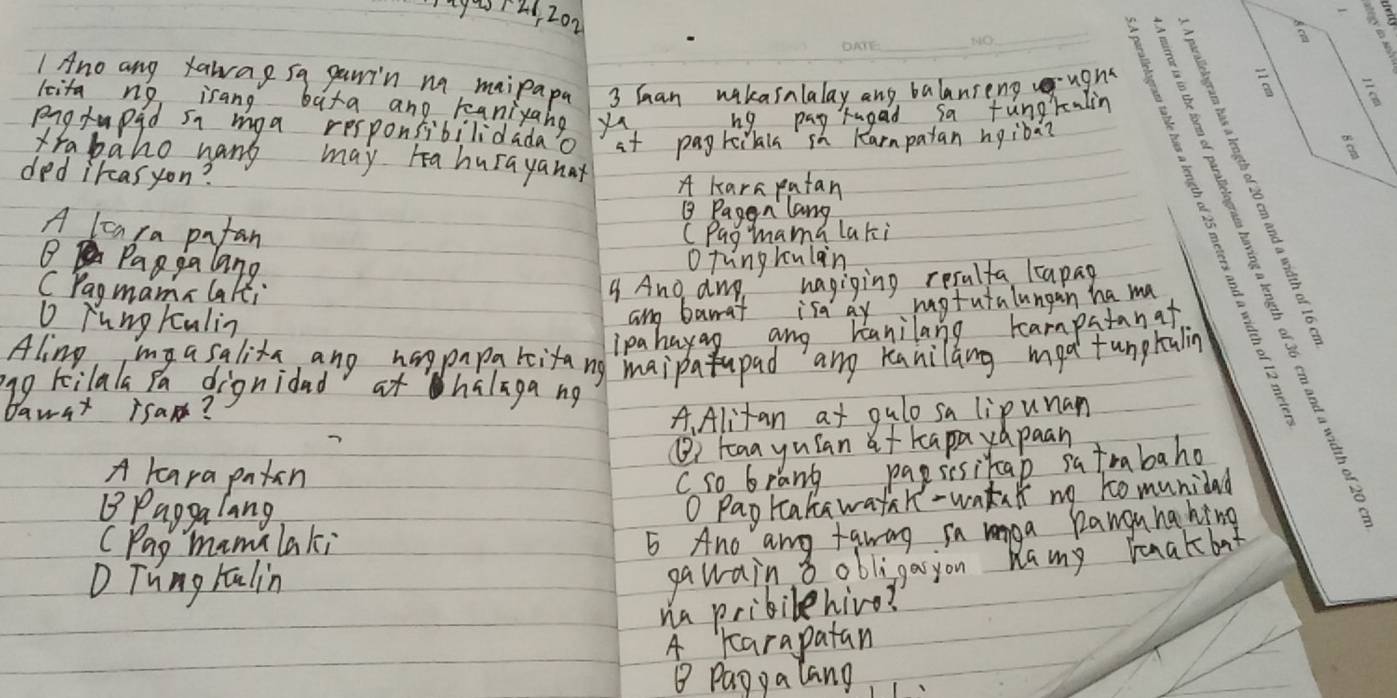 1 Ano ang tawag sa gawin na maipapa
kita ng isang bata ang kaniyang
pagtupad sa mga responsibilidada o
trabaho nang may ka husayanat
dedikasyon?
A kara patan
B Paggalang
C Pagmamalaki
D Tungkulin
Aling mga salita ang nagpapakita ng
pag kilala sa dignidad at halaga ng
bawat isa?
A karapatan
B Paggalang
C Pag mamalaki
D Tungkulin
DATE NO
3 Saan nakasalalay ang balanseng ugna
ya ng pag tugad sa tungkulin
at pagkilala sa karapatan ngiba?
A karapatan
B Paggalang
C Pag mamalaki
D Tungkulin
4 Ano ang nagiging resulta kapag
ang bawat isa ay nagtutulungan na ma
ipahayag ang kanilang karapatanat
maipatupad ang kanilang mga tungkulin
A. Alitan at gulo sa lipunan
B) kaayusan at kapayapaan
C so brang pagsesikap sa trabaho
D Pag kakawatak-watak ng komunidad
5 Ano ang tawag sa mga pangunahing
gawain o obligasyon na my kaakbat
na pribilehiyo?
A karapatan
B Paggalang
1.
8 cm
11 cm
11 cm
8 cm
3. A parallelogram has a length of 20 cm and a width of 16 cm.
4. A mirror is in the form of parallelogram having a length of 36 cm and a width of 20 cm.
5. A parallelogram table has a length of 25 meters and a width of 12 meters.